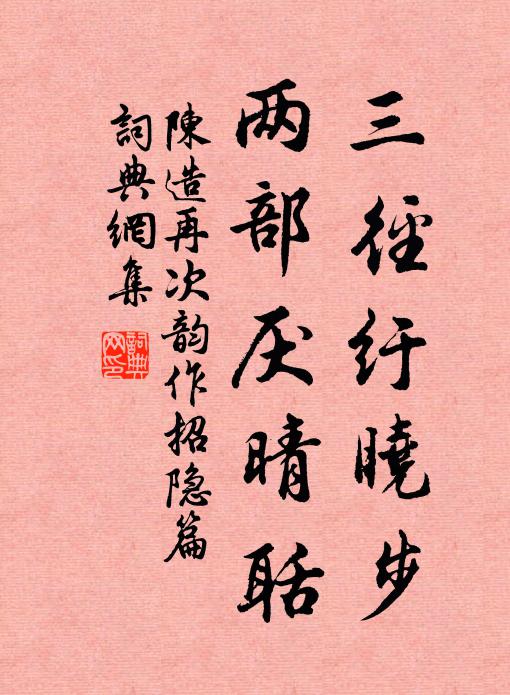 三徑纡曉步
两部厌晴聒
陳造再次韵作招隐篇
詞典網集
詞典網印